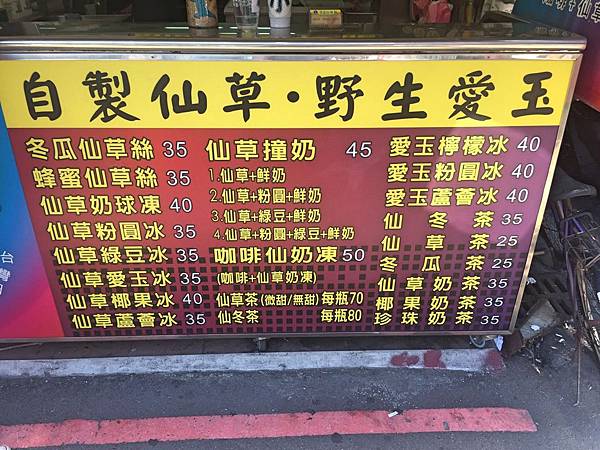 自製仙草·野生愛玉
冬瓜仙草絲 35
蜂蜜仙草絲 35
仙草奶球凍 40
仙草粉圓冰 35
仙草綠豆冰 35
仙草愛玉冰 35
仙草椰果冰 40
仙草蘆薈冰 35
仙草撞奶 45
1.仙草+鮮奶
2.仙草+粉圓+鮮奶
3.仙草+綠豆+鮮奶
4.仙草+粉圓+綠豆+鮮奶
咖啡仙奶凍50
(咖啡+仙草奶凍)
仙草茶(微甜/無甜)每瓶70
仙冬茶 每瓶80
愛玉檸檬冰 40
愛玉粉圓冰 40
愛玉蘆薈冰 40
仙冬茶 35
仙草茶 25
冬瓜茶 25
仙草奶茶 35
椰果奶茶 35
珍珠奶茶 35
台